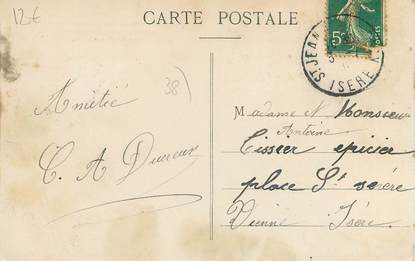 12€
CARTE POSTALE
5c
ST JEAN
ISÈRE
38)
Amitié
C. A
M adame & Monsieur
Antoine
Tissier epicier
place St sévère
Vienne Isère.